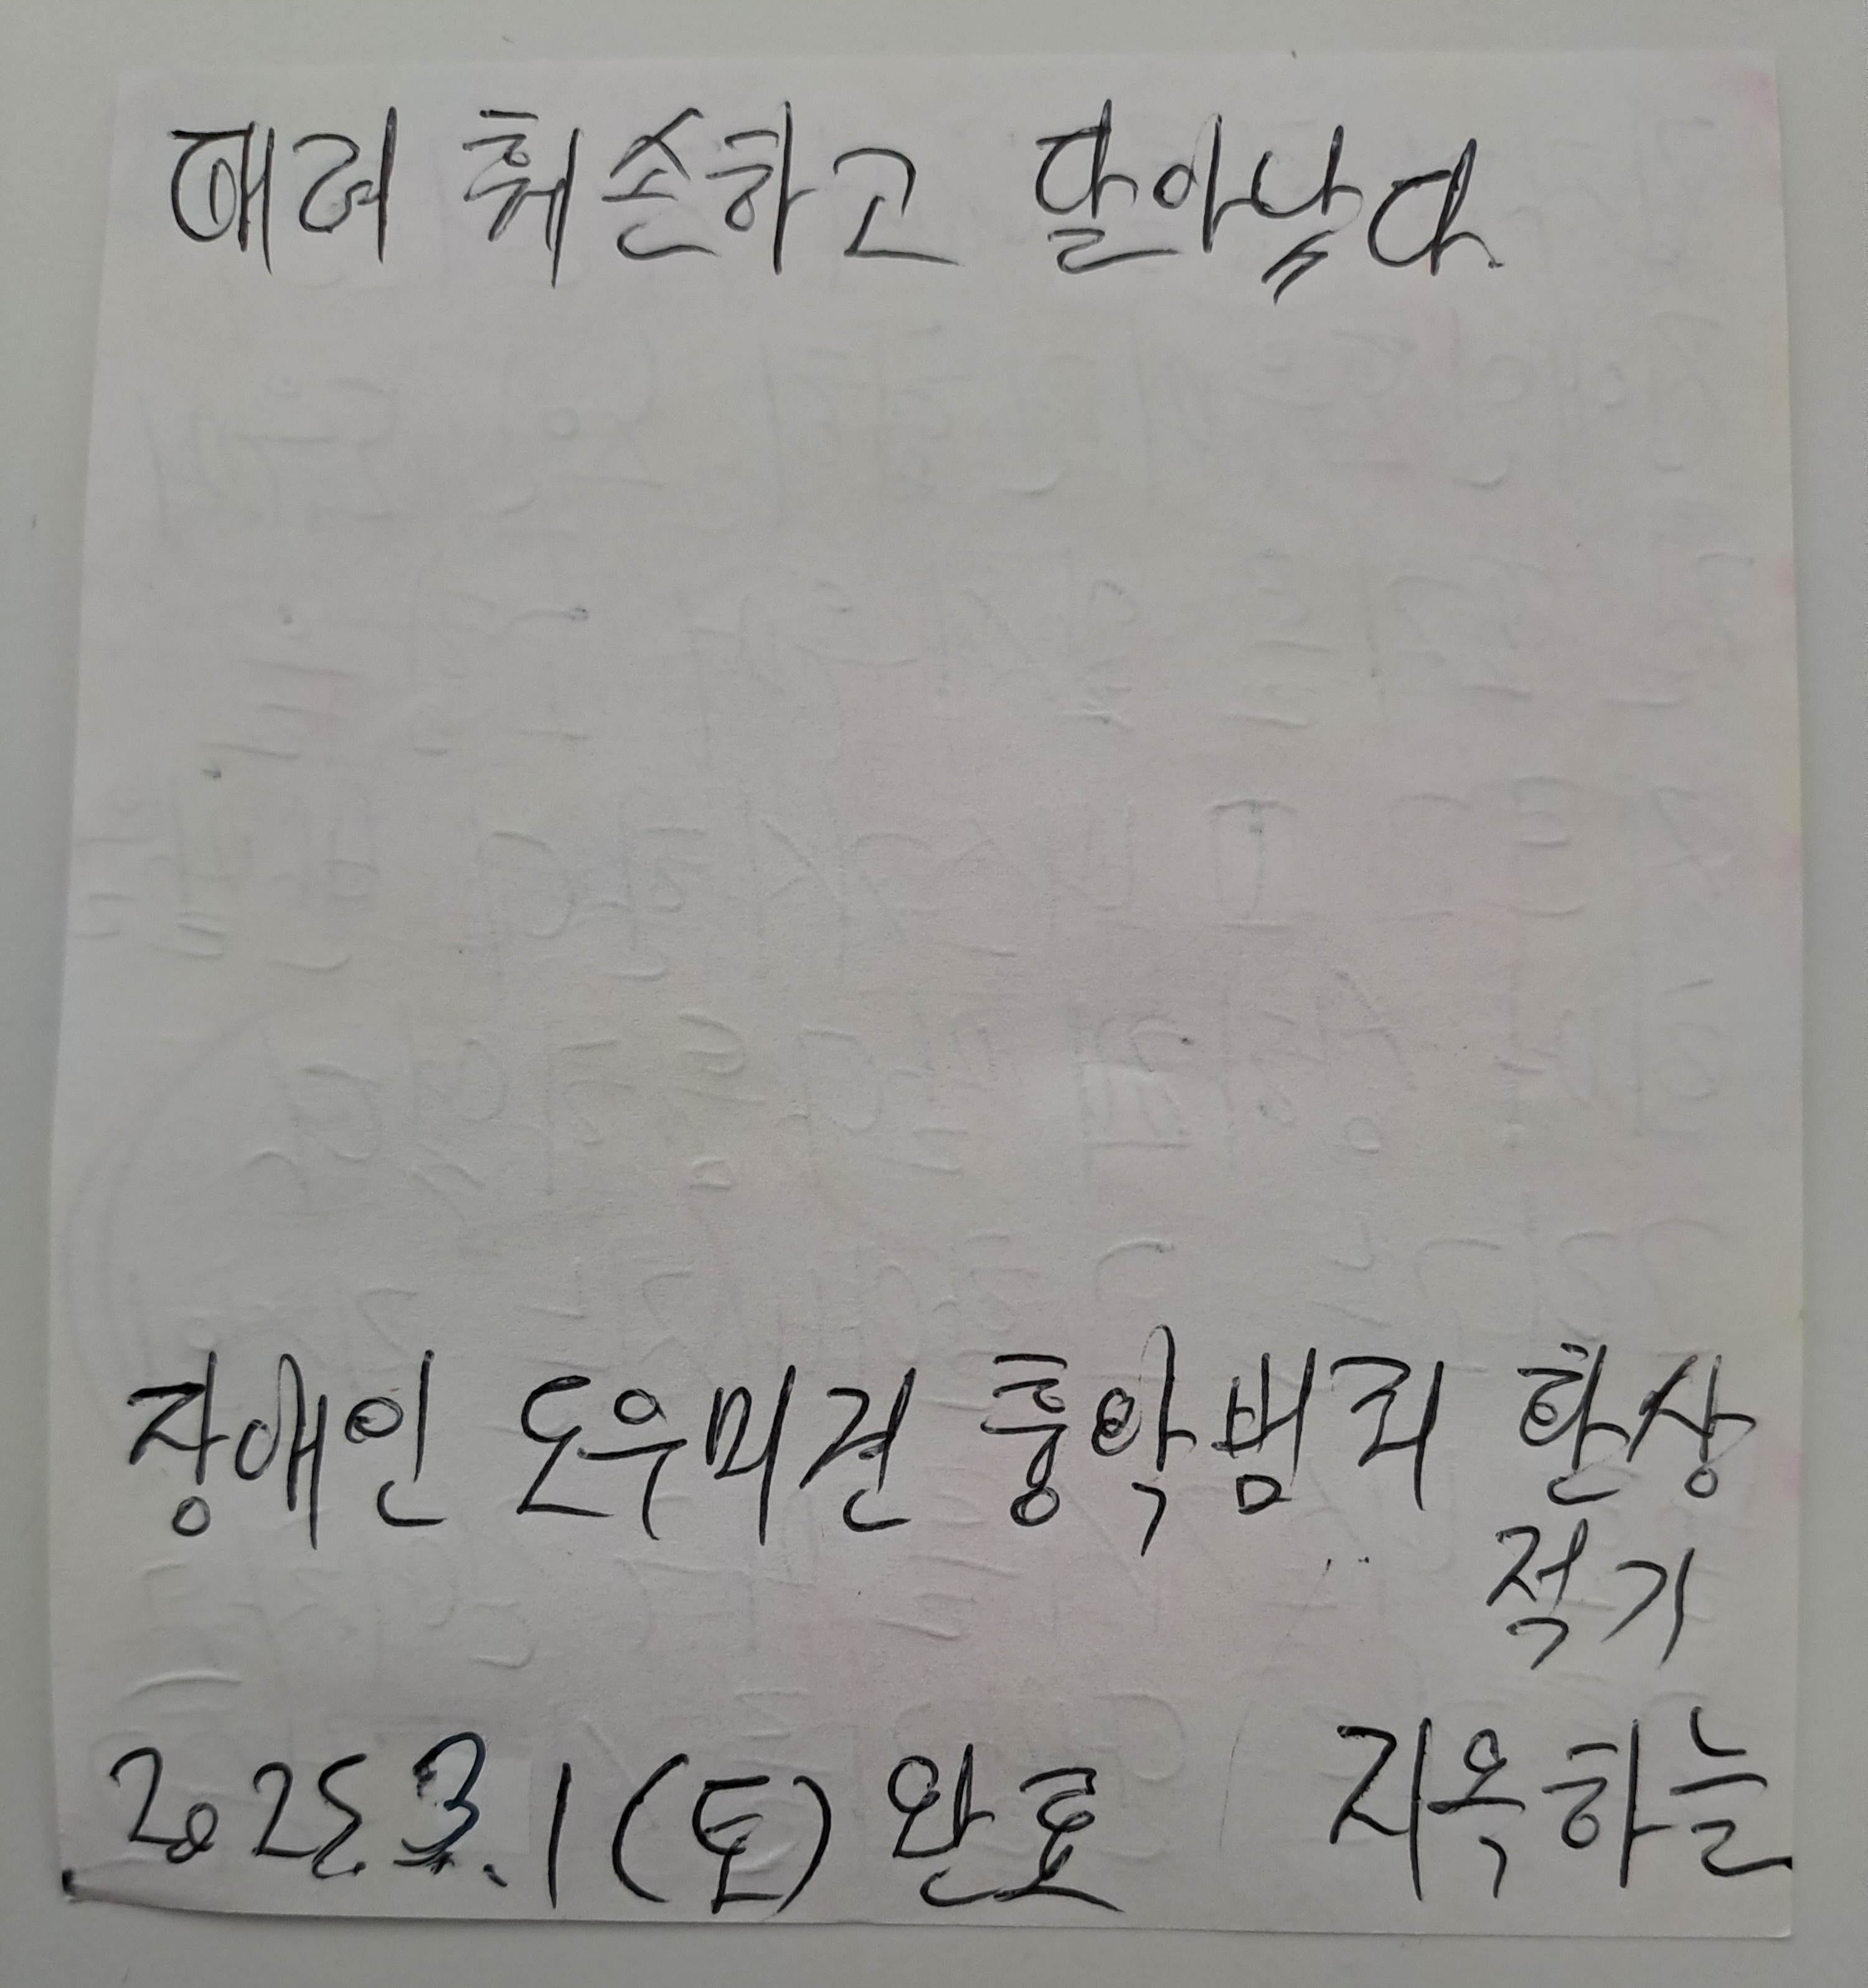 때려 훼손하고 달아났다.
장애인 도우미견 흉악범죄 환상
적기
2025.3.1(토) 완료 지옥하늘